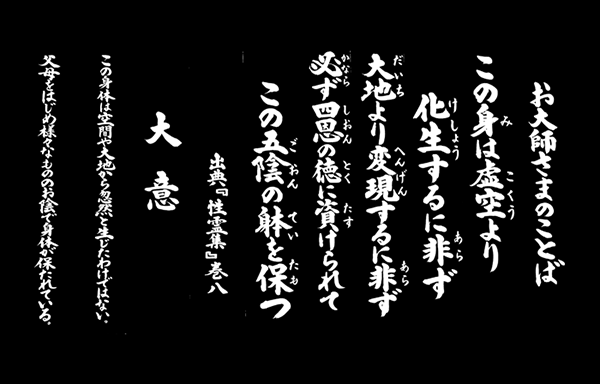 お大師さまのことば
この身は虚空より
化生するに非ず
大地より変現するに非ず
必ず四恩の徳に資けられて
この五陰の躰を保つ
出典『性霊集』巻八
大意
この身体は空間や大地から忽然と生じたわけではない。
父母をはじめ様々なもののお陰で身体が保たれている。